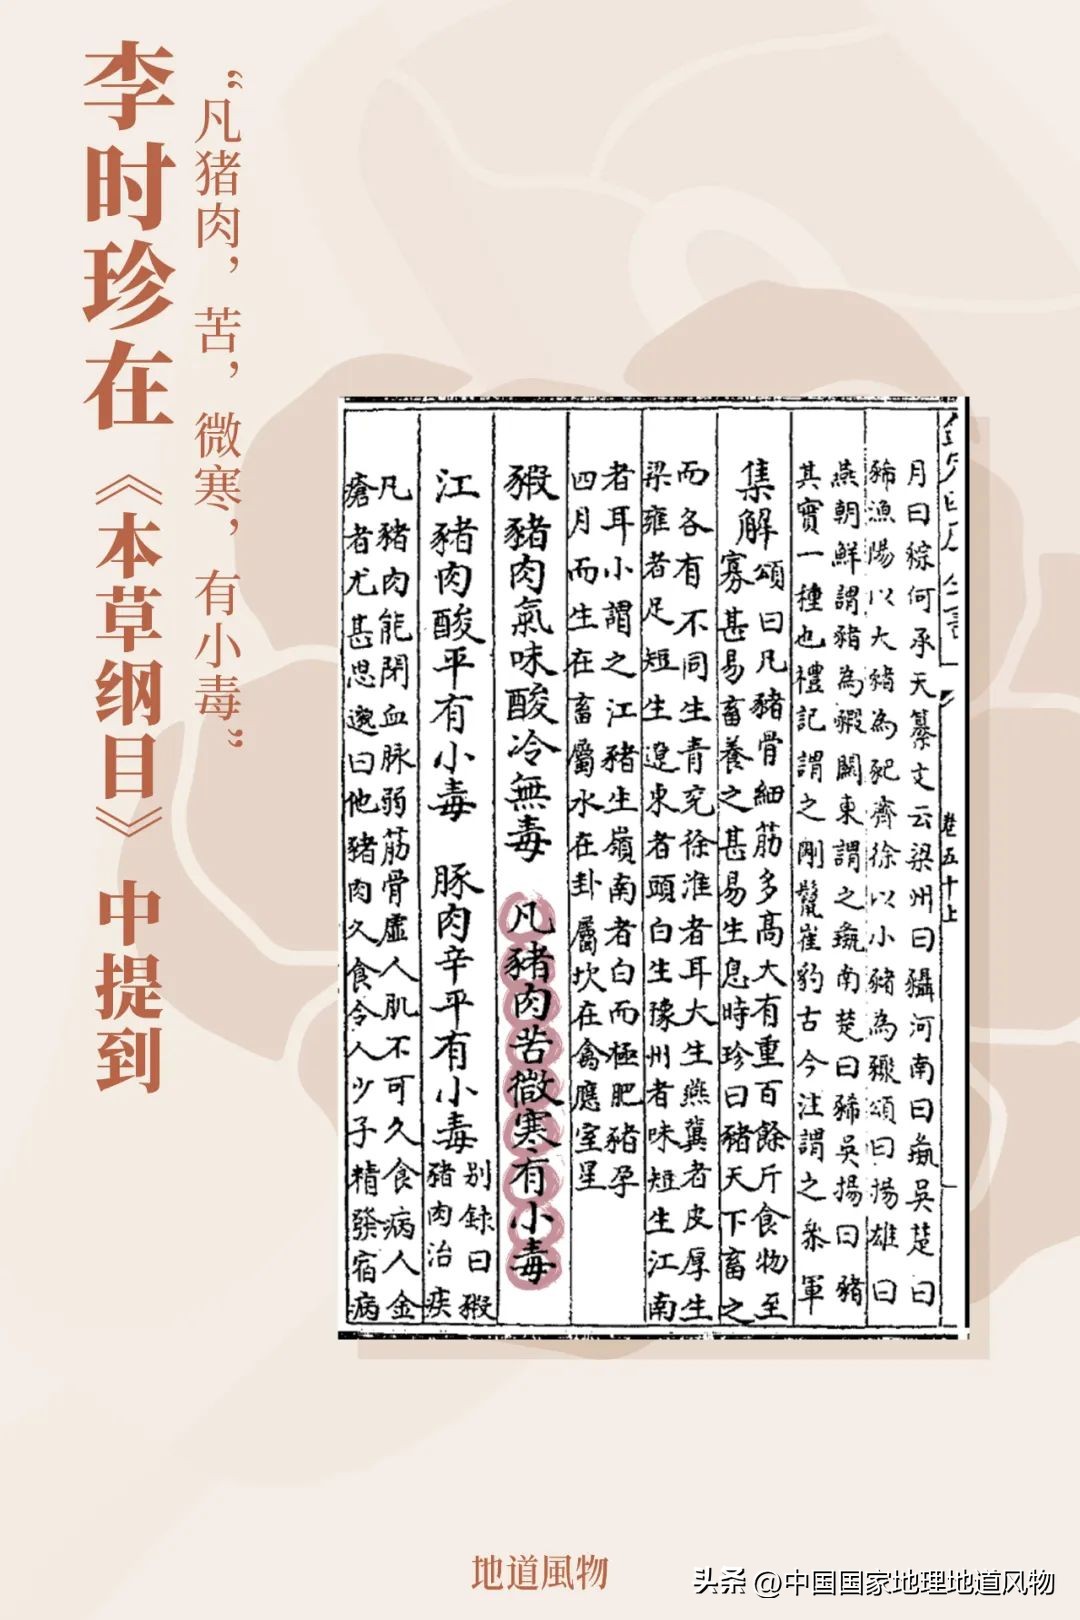 李时珍在《本草纲目》中提到
“凡猪肉，苦，微寒，有小毒”
卷五十上
月曰豥何承天纂文云梁州曰䝕河南曰彘吳楚曰
豨漁陽以大豬為豝齊徐以小豬為豵頌曰揚雄曰
燕朝鮮謂豬為豭關東謂之彘南楚曰豨吳揚曰豬
其實一種也禮記謂之剛鬣崔豹古今注謂之參軍
集解頌曰凡豬骨細筋多高大有重百餘斤食物至
寡甚易畜養之甚易生息時珍曰豬天下畜之
而各有不同生青兖徐淮者耳大生燕冀者皮厚生
梁雍者足短生遼東者頭白生豫州者味短生江南
者耳小謂之江豬生嶺南者白而極肥豬孕
四月而生在畜屬水在卦屬坎在禽應室星
豭豬肉氣味酸冷無毒 凡豬肉苦微寒有小毒
江豬肉酸平有小毒 豚肉辛平有小毒
別錄曰豭
豬肉治疾
凡豬肉能閉血脉弱筋骨虛人肌不可久食病人金
瘡者尤甚思邈曰他豬肉久食令人少子精發宿病
地道風物
头条 @中国国家地理地道风物